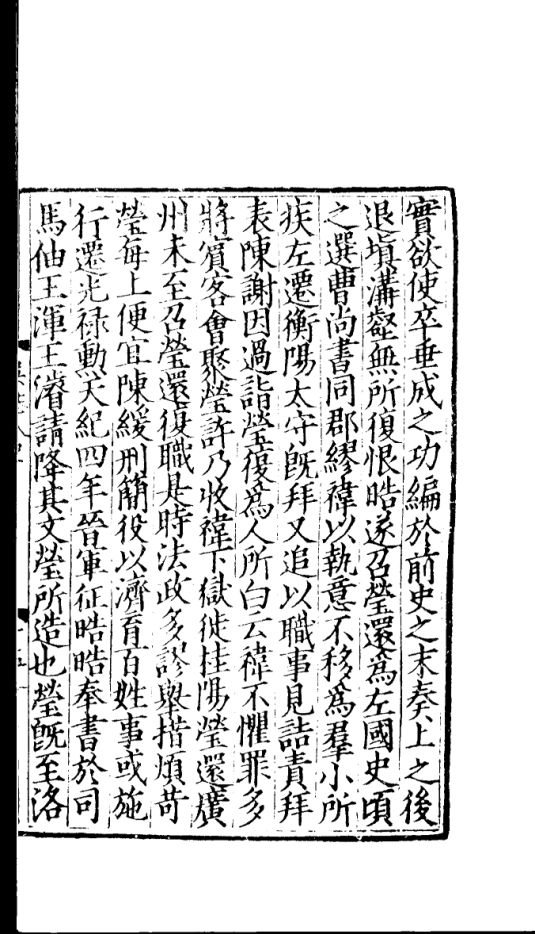 實欲使卒垂成之功編於前史之末奏上之後
退塡溝壑無所復恨晧遂召瑩還爲左國史頃
之選曹尚書同郡繆禕以執意不移爲羣小所
疾左遷衡陽太守旣拜又追以職事見詰責拜
表陳謝因過詣瑩復爲人所白云禕不懼罪多
將賓客會聚瑩許乃收禕下獄徙桂陽瑩還廣
州未至召瑩還復職是時法政多謬舉措煩苛
瑩每上便宜陳緩刑簡役以濟育百姓事或施
行遷光禄勲天紀四年晉軍征晧晧奉書於司
馬伷王渾王濬請降其文瑩所造也瑩旣至洛